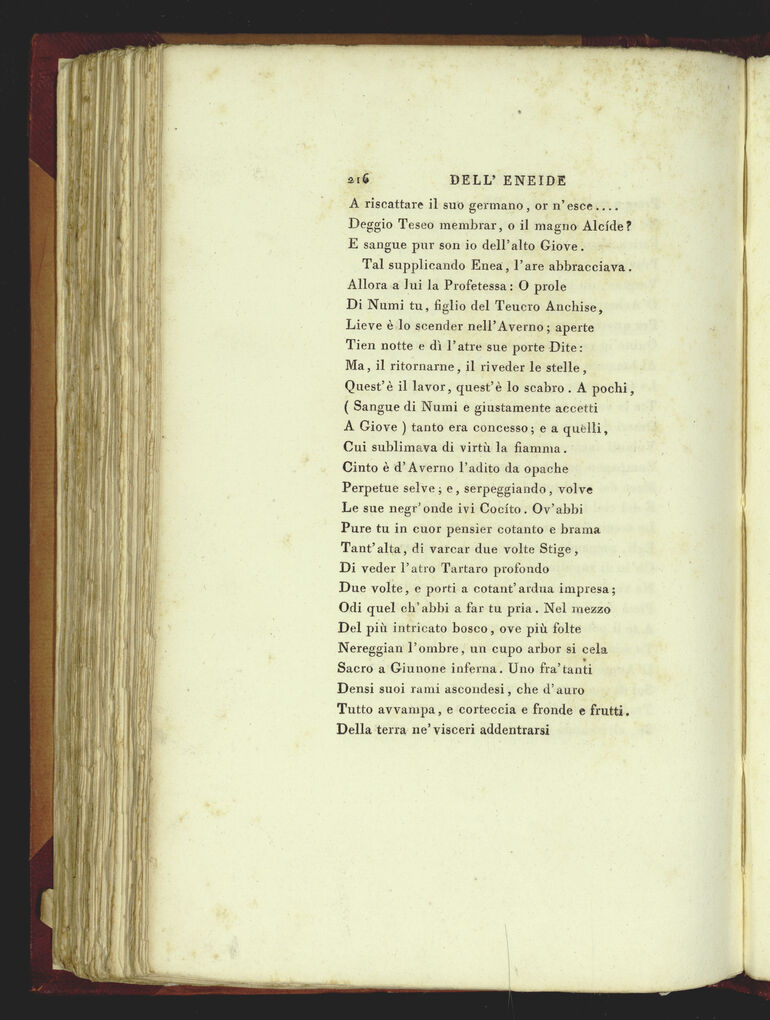 216 DELL' ENEIDE
A riscattare il suo germano, or n'esce....
Deggio Teseo membrar, o il magno Alcíde?
E sangue pur son io dell'alto Giove.
Tal supplicando Enea, l'are abbracciava.
Allora a lui la Profetessa: O prole
Di Numi tu, figlio del Teucro Anchise,
Lieve è lo scender nell'Averno; aperte
Tien notte e dì l'atre sue porte Dite:
Ma, il ritornarne, il riveder le stelle,
Quest'è il lavor, quest'è lo scabro. A pochi,
(Sangue di Numi e giustamente accetti
A Giove) tanto era concesso; e a quelli,
Cui sublimava di virtù la fiamma.
Cinto è d'Averno l'adito da opache
Perpetue selve; e, serpeggiando, volve
Le sue negr'onde ivi Cocíto. Ov'abbi
Pure tu in cuor pensier cotanto e brama
Tant'alta, di varcar due volte Stige,
Di veder l'atro Tartaro profondo
Due volte, e porti a cotant'ardua impresa;
Odi quel ch'abbi a far tu pria. Nel mezzo
Del più intricato bosco, ove più folte
Nereggian l'ombre, un cupo arbor si cela
Sacro a Giunone inferna. Uno fra'tanti
Densi suoi rami ascondesi, che d'auro
Tutto avvampa, e corteccia e fronde e frutti.
Della terra ne' visceri addentrarsi